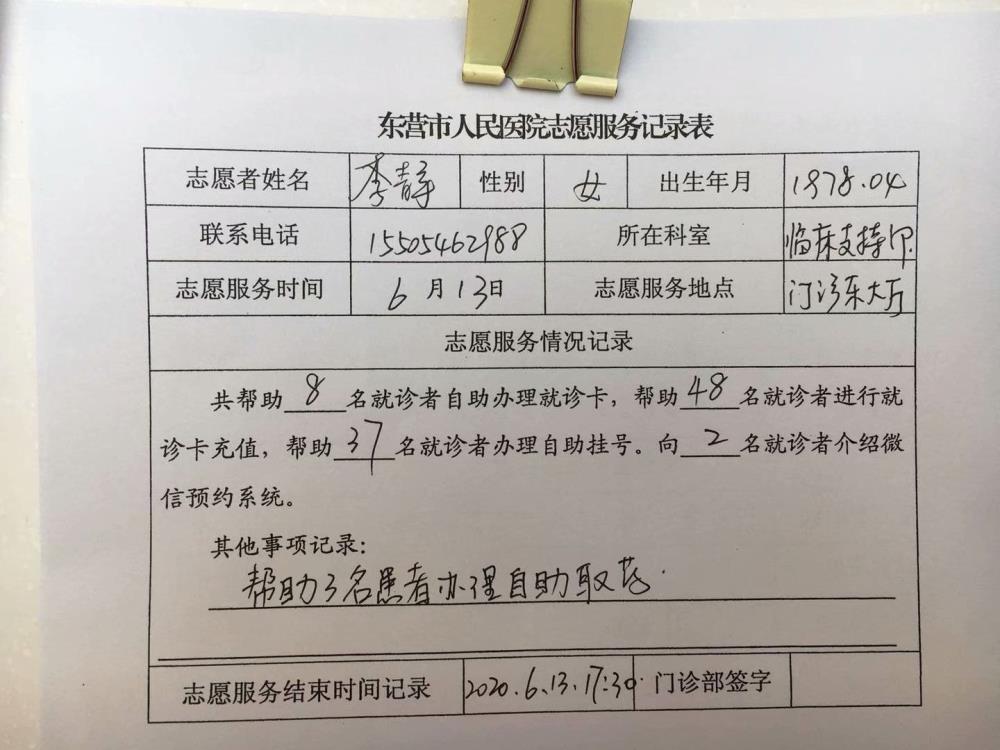 东营市人民医院志愿服务记录表
志愿者姓名 李静 性别 女 出生年月 1978.04
联系电话 15505462988 所在科室 临床支持部
志愿服务时间 6月13日 志愿服务地点 门诊东大厅
志愿服务情况记录
共帮助 8 名就诊者自助办理就诊卡，帮助 48 名就诊者进行就
诊卡充值，帮助 37 名就诊者办理自助挂号。向 2 名就诊者介绍微
信预约系统。
其他事项记录：
帮助3名患者办理自助取药.
志愿服务结束时间记录 2020.6.13.17:30. 门诊部签字